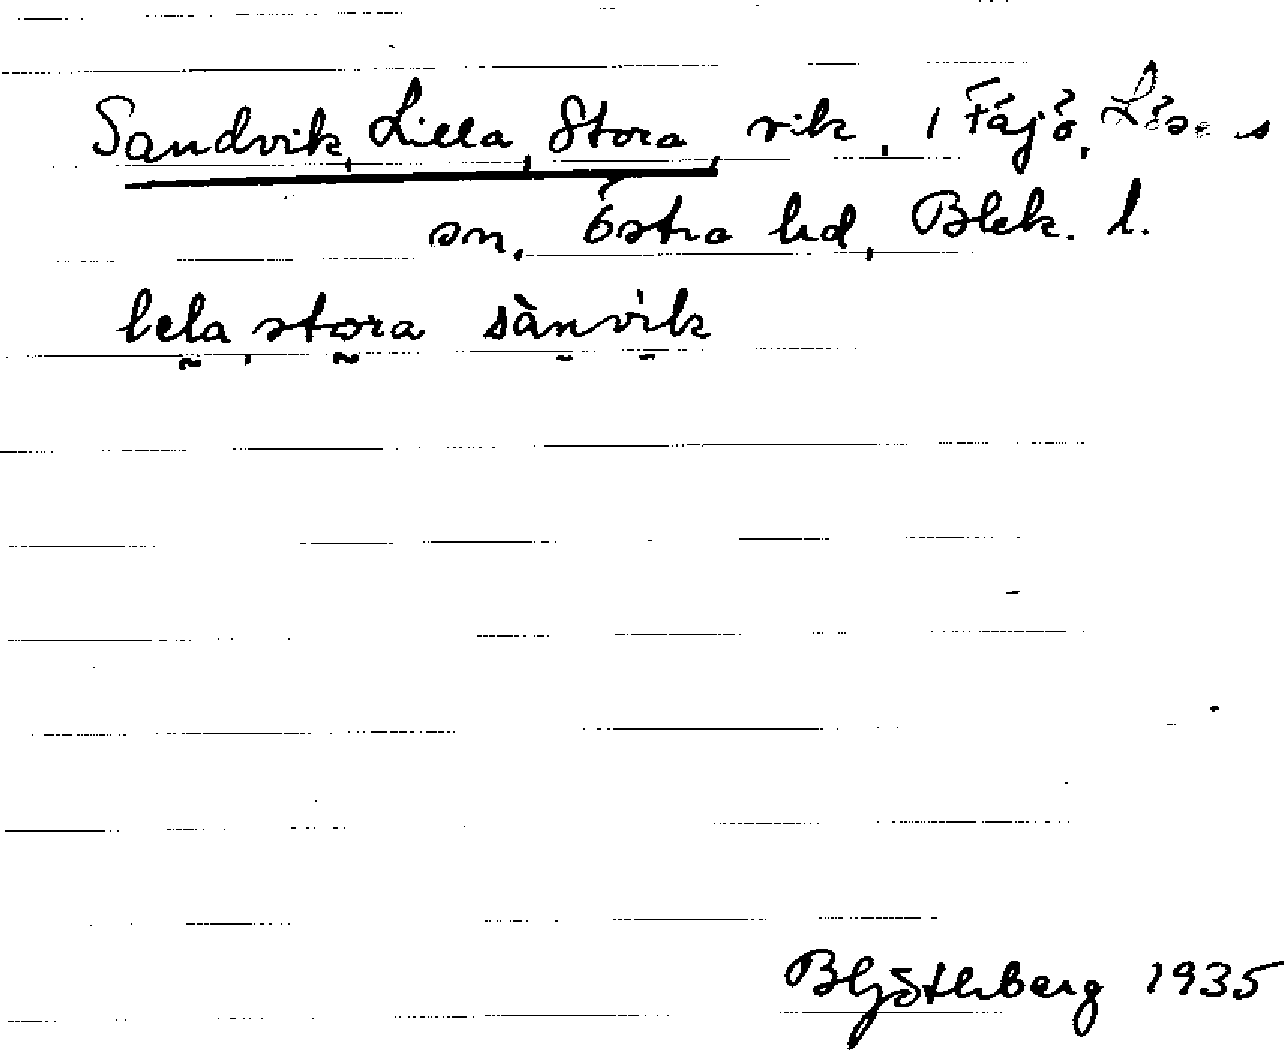 Sandvik, Lilla, Stora, vik, i Fäjö, Lösens
sn, Östra hd, Blek. l.
lela, stora sànvìk
B Göthberg 1935